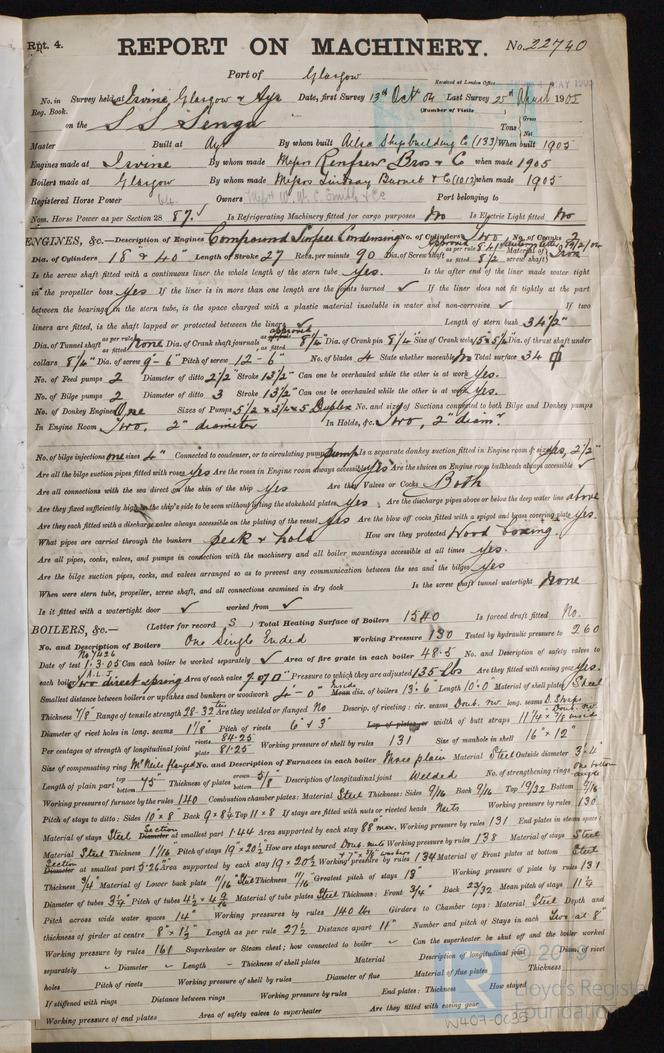 Rpt. 4. REPORT ON MACHINERY. No. 22740
Port of Glasgow
Received at London Office MAY 190
No. in Survey held at Irvine, Glasgow & Ayr Date, first Survey 13th Oct 04 Last Survey 25th April 1905
Reg. Book. (Number of Visits
on the S S Senga Tons Gross Net
Master Built at Ayr By whom built Ailsa Shipbuilding Co (133) When built 1905
Engines made at Irvine By whom made Messrs Renfrew Bros & Co when made 1905
Boilers made at Glasgow By whom made Messrs Lindsay Burnet & Co (1012) when made 1905
Registered Horse Power Owners Port belonging to
Nom. Horse Power as per Section 28 87. ✓ Is Refrigerating Machinery fitted for cargo purposes No Is Electric Light fitted No
ENGINES, &c.—Description of Engines Compound Surface Condensing No. of Cylinders Two No. of Cranks 2
Dia. of Cylinders 18" & 40" Length of Stroke 27 Revs. per minute 90 Dia. of Screw shaft as per rule 8.41 as fitted 8 1/2 Material of screw shaft Iron
Is the screw shaft fitted with a continuous liner the whole length of the stern tube yes. Is the after end of the liner made water tight
in the propeller boss yes If the liner is in more than one length are the joints burned ✓ If the liner does not fit tightly at the part
between the bearings in the stern tube, is the space charged with a plastic material insoluble in water and non-corrosive ✓ If two
liners are fitted, is the shaft lapped or protected between the liners ✓ Length of stern bush 34 1/2"
Dia. of Tunnel shaft as per rule as fitted None Dia. of Crank shaft journals as per rule approved as fitted 8 1/4" Dia. of Crank pin 8 1/4" Size of Crank webs 15 x 5 1/4 Dia. of thrust shaft under
collars 8 1/4" Dia. of screw 9'-6" Pitch of screw 12-6" No. of blades 4 State whether moveable No Total surface 34
No. of Feed pumps 2 Diameter of ditto 2 1/2" Stroke 13 1/2" Can one be overhauled while the other is at work yes.
No. of Bilge pumps 2 Diameter of ditto 3 Stroke 13 1/2" Can one be overhauled while the other is at work yes.
No. of Donkey Engines One Sizes of Pumps 5 1/2 x 3 3/4 x 5 Duplex No. and size of Suctions connected to both Bilge and Donkey pumps
In Engine Room Two, 2" diameter In Holds, &c. Two, 2" diamr.
No. of bilge injections one sizes 4" Connected to condenser, or to circulating pump pump Is a separate donkey suction fitted in Engine room & size yes, 2 1/2"
Are all the bilge suction pipes fitted with roses yes Are the roses in Engine room always accessible yes Are the sluices on Engine room bulkheads always accessible ✓
Are all connections with the sea direct on the skin of the ship yes Are they Valves or Cocks Both
Are they fixed sufficiently high on the ship's side to be seen without lifting the stokehold plates yes Are the discharge pipes above or below the deep water line above
Are they each fitted with a discharge valve always accessible on the plating of the vessel yes Are the blow off cocks fitted with a spigot and brass covering plate yes.
What pipes are carried through the bunkers peak & hold How are they protected Wood Casing.
Are all pipes, cocks, valves, and pumps in connection with the machinery and all boiler mountings accessible at all times yes.
Are the bilge suction pipes, cocks, and valves arranged so as to prevent any communication between the sea and the bilges yes
When were stern tube, propeller, screw shaft, and all connections examined in dry dock Is the screw shaft tunnel watertight None
Is it fitted with a watertight door ✓ worked from ✓
BOILERS, &c.— (Letter for record S ) Total Heating Surface of Boilers 1540 Is forced draft fitted No.
No. and Description of Boilers One Single Ended Working Pressure 130 Tested by hydraulic pressure to 260
No 7426
Date of test 1.3.05 Can each boiler be worked separately ✓ Area of fire grate in each boiler 48.5 No. and Description of safety valves to
each boiler Two direct spring Area of each valve 7.07 Pressure to which they are adjusted 135 lbs Are they fitted with easing gear yes.
Smallest distance between boilers or uptakes and bunkers or woodwork 4'-0" Inside Mean dia. of boilers 13'.6 Length 10'.0" Material of shell plates Steel
Thickness 7/8" Range of tensile strength 28-32 Are they welded or flanged No Descrip. of riveting: cir. seams Doub. riv. long. seams
Diameter of rivet holes in long. seams 1 1/8" Pitch of rivets 6" & 3" Lap of plates or width of butt straps 11 1/4 x 7/8 inside
Per centages of strength of longitudinal joint rivets 84.25 plate 81.25 Working pressure of shell by rules 131 Size of manhole in shell 16" x 12"
Size of compensating ring McNeils flanged No. and Description of Furnaces in each boiler Three plain Material Steel Outside diameter 3'.4"
Length of plain part top bottom 75" Thickness of plates crown bottom 5/8" Description of longitudinal joint Welded No. of strengthening rings One bottom angle
Working pressure of furnace by the rules 140 Combustion chamber plates: Material Steel Thickness: Sides 9/16 Back 9/16 Top 19/32 Bottom 9/16
Pitch of stays to ditto: Sides 10 x 8 Back 9 x 8 1/2 Top 11 x 8 If stays are fitted with nuts or riveted heads Nuts Working pressure by rules 130
Material of stays Steel Section Diameter at smallest part 1.44 Area supported by each stay 88" max. Working pressure by rules 131 End plates in steam space:
Material Steel Thickness 1 1/16 Pitch of stays 19 x 20 1/2 How are stays secured Doub. nuts Working pressure by rules 138 Material of stays Steel
Section Diameter at smallest part 5.26 Area supported by each stay 19 x 20 1/2 Working pressure by rules 134 Material of Front plates at bottom Steel
Thickness 3/4" Material of Lower back plate 11/16" Steel Thickness 11/16" Greatest pitch of stays 18" Working pressure of plate by rules 131
Diameter of tubes 3 1/4" Pitch of tubes 4 1/2 x 4 9/16 Material of tube plates Steel Thickness: Front 3/4" Back 23/32 Mean pitch of stays 11 1/4
Pitch across wide water spaces 14" Working pressures by rules 140 lbs Girders to Chamber tops: Material Steel Depth and
thickness of girder at centre 8" x 1 1/2" Length as per rule 27 1/2 Distance apart 11" Number and pitch of Stays in each Two at 8"
Working pressure by rules 161 Superheater or Steam chest; how connected to boiler Can the superheater be shut off and the boiler worked
separately Diameter Length Thickness of shell plates Material Description of longitudinal joint Diam. of rivet
holes Pitch of rivets Working pressure of shell by rules Diameter of flue Material of flue plates Thickness
If stiffened with rings Distance between rings Working pressure by rules End plates: Thickness How stayed
Working pressure of end plates Area of safety valves to superheater Are they fitted with easing gear
© 2019
Lloyd's Register
Foundation
W407-0035